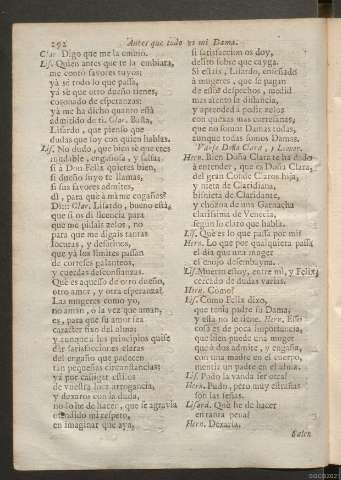 292 Antes que todo es mi Dama.
Clar. Digo que me la embió.
Lis. Quien antes que te la embiara,
me contó favores tuyos;
yá sé todo lo que passa,
yá sé que otro dueño tienes,
coronado de esperanzas;
yá me ha dicho quanto está
admitido de ti. Clar. Basta,
Lisardo, que pienso que
dudas que soy con quien hablas.
Lis. No dudo, que bien sé que eres
mudable, engañosa, y falsa;
si à Don Felix quieres bien,
si dueño suyo te llamas,
si sus favores admites,
di, para què à mi me engañas?
Di:: Clar. Lisardo, bueno está,
que si os di licencia para
que me pidais zelos, no
para que me digais tantas
locuras, y desatinos,
que yá los limites passan
de corteses galanteos,
y cuerdas desconfianzas.
Què es aquello de otro dueño,
otro amor, y otra esperanza?
Las mugeres como yo,
no aman, ò la vez que aman,
es, para que su amor sea
caracter fixo del alma:
y aunque à los principios quise
dar satisfacciones claras
del engaño que padecen
tan pequeñas circunstancias:
yá por castigar estilos
de vuestra loca arrogancia,
y dexaros con la duda,
no lo he de hacer, que se agravia
ofendido mi respeto,
en imaginar que aya,
si satisfaccion os doy,
delito sobre que cayga.
Si esta, Lisardo, enseñado
à mugeres, que se pagan
de essos despechos, medid
mas atento la distancia,
y aprended à pedir zelos
con quexas mas cortesanas,
que no somos Damas todas,
aunque todas somos Damas.
Vanse Doña Clara, y Leonor.
Hern. Bien Doña Clara te ha dado
à entender, que es Doña Clara,
del gran Conde Claros hija,
y nieta de Claridiana,
bisnieta de Claridante,
y chozna de una Garnacha
clarissima de Venecia,
segun lo claro que habla.
Lis. Què es lo que passa por mi?
Hern. Lo que por qualquiera passa
el dia que una muger
el enojo desembayna.
Lis. Muerto estoy, entre mi, y Felix,
cercado de dudas varias.
Hern. Cómo?
Lis. Como Felix dixo,
que tenia padre su Dama;
y ella no le tiene. Hern. Essa
cosa es de poca importancia,
que bien puede una muger
que à dos admite, y engaña,
con una madre en el cuerpo,
mentir un padre en el alma.
Lis. Podo la vanda ser otra?
Hern. Pudo, pero muy estrañas
son las señas.
Lisard. Què he de hacer
en tanta pena?
Hern. Dexarla.
Salen